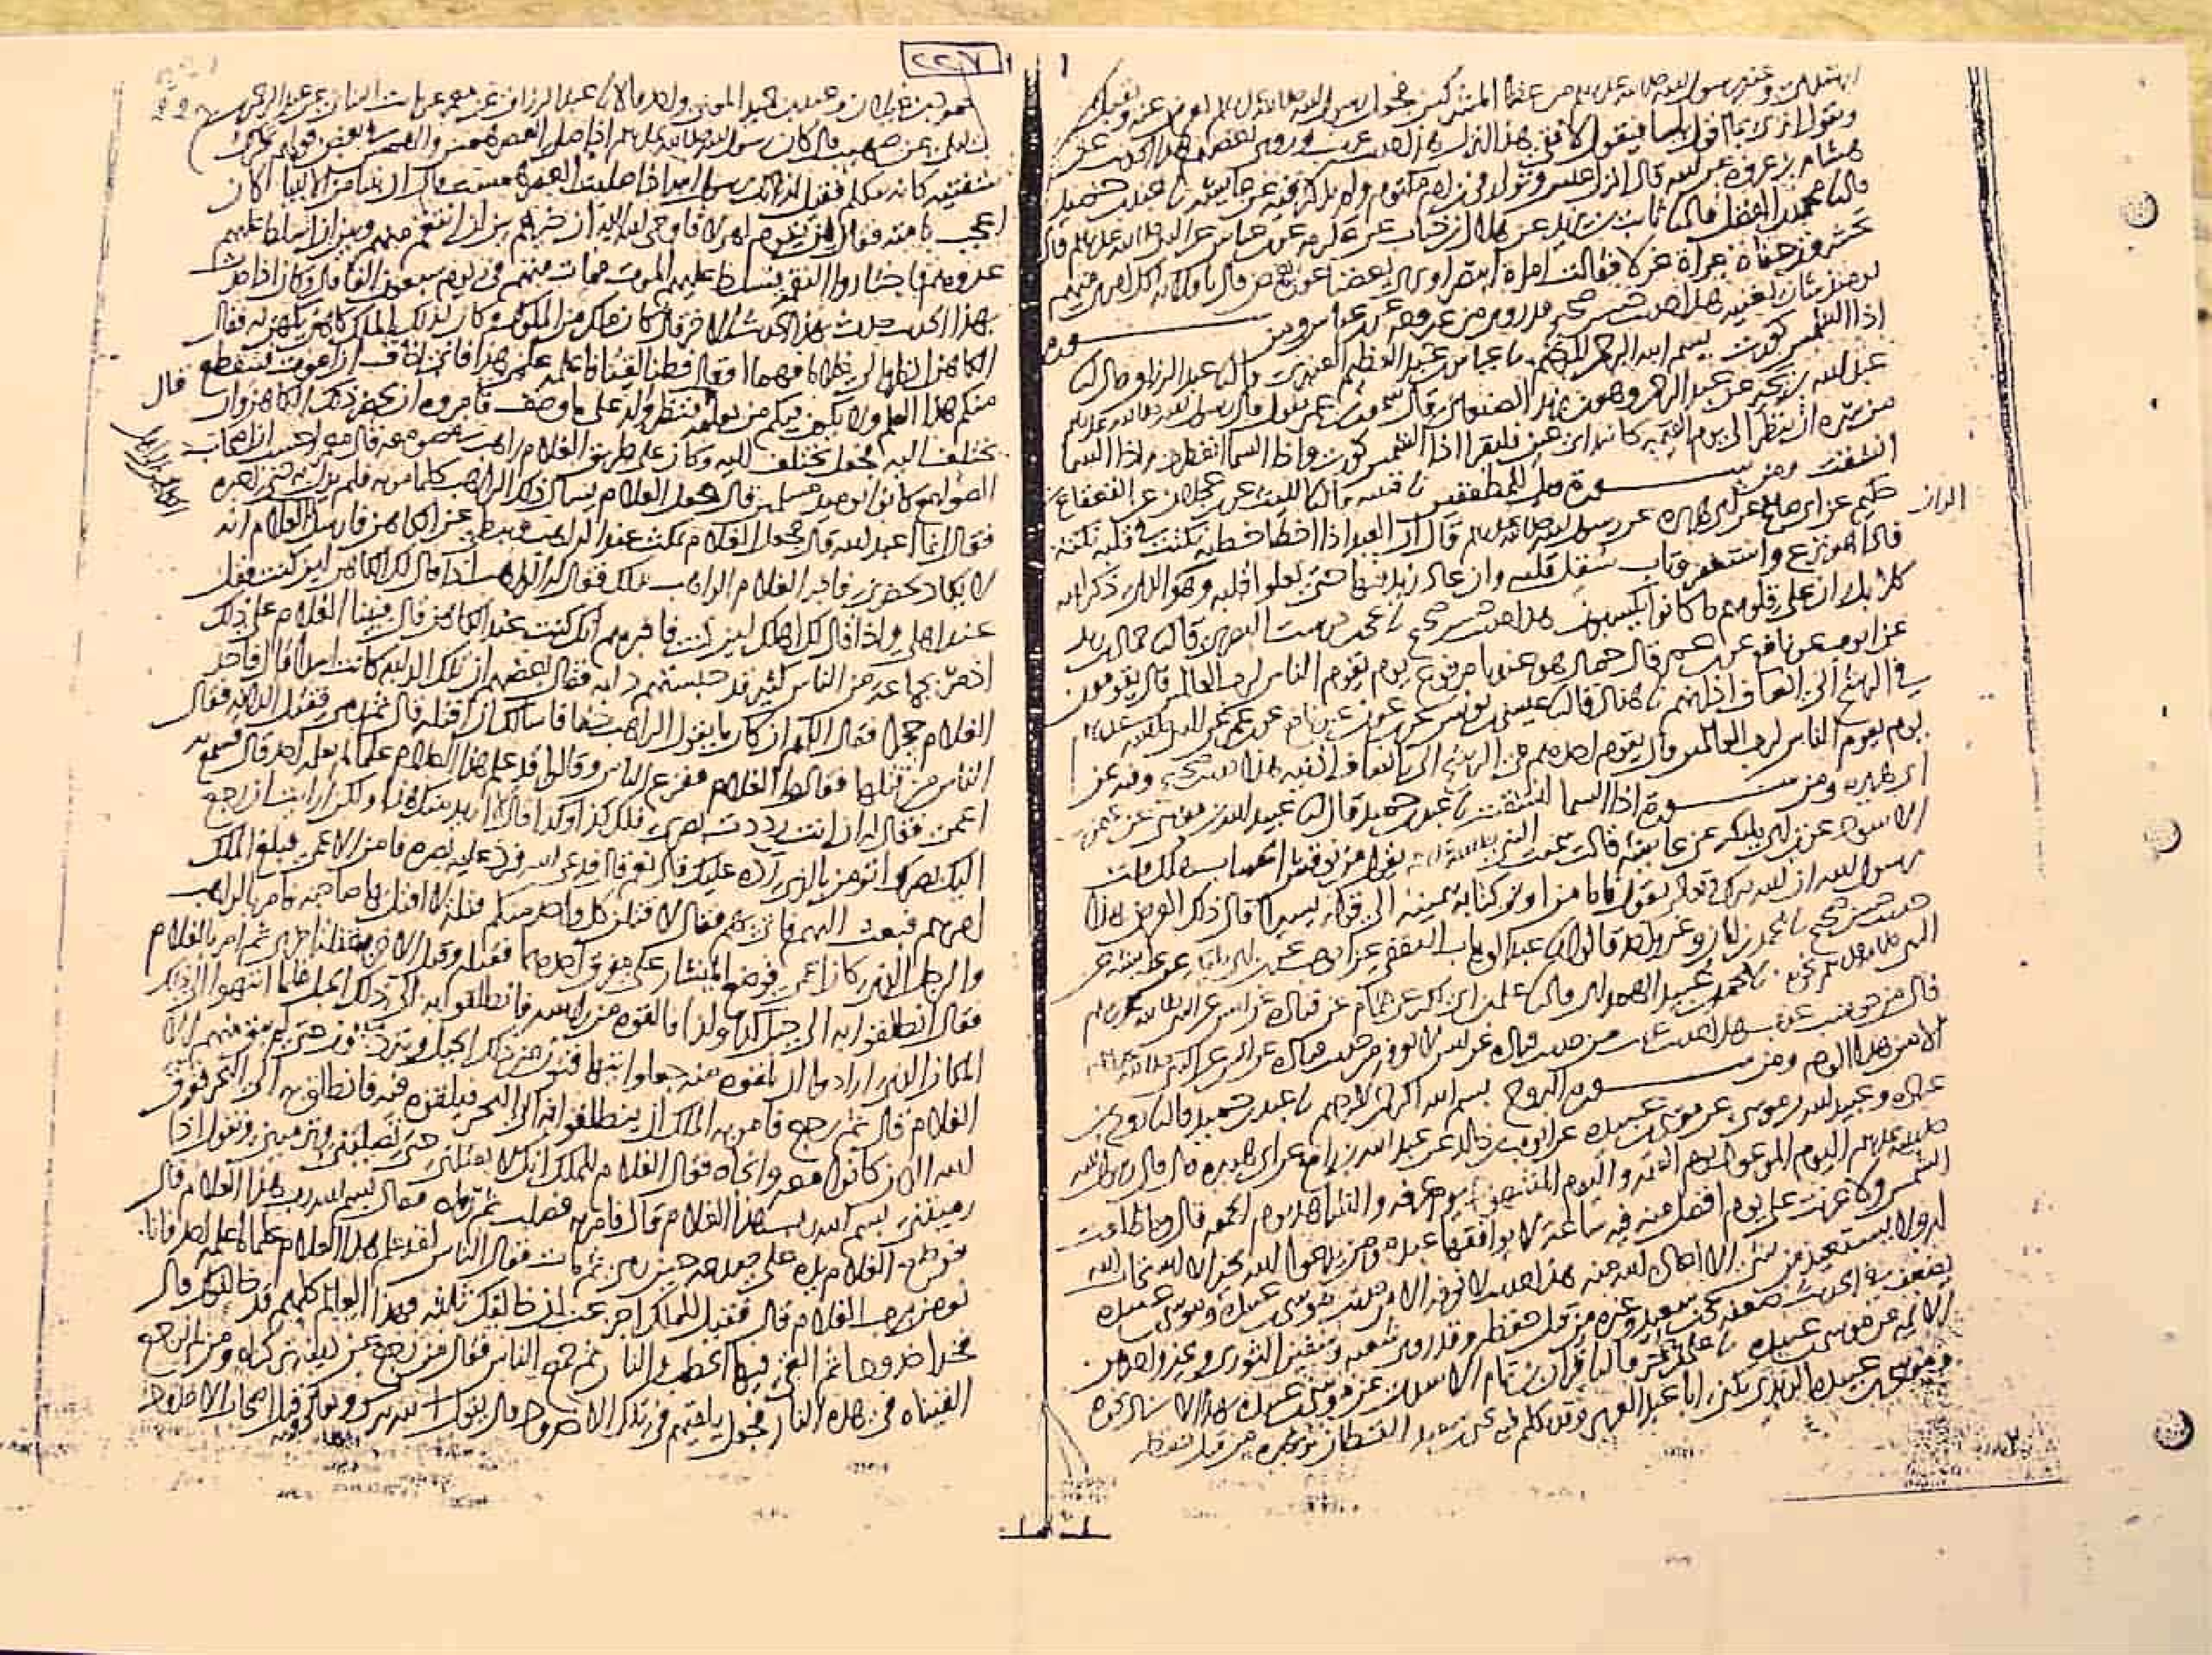 رسول الله صلى الله عليه من عظما المشركين فجعل رسول الله صلى الله عليه يعرض عنه ويقبل
ويقول اترى بما اقول باسا فيقول لا ففي هذا انزل هذا حديث غريب وروى بعضهم هذا الحديث عن
هشام بن عروه عن ابيه قال انزل عبس وتولى في ابن ام مكتوم ولم يذكر فيه عن عايشه نا عبد بن حميد
قال نا محمد بن الفضل قال نا ثابت بن يزيد عن هلال بن خباب عن عكرمه عن ابن عباس عن النبي صلى الله عليه قال
تحشرون حفاة عراة غرلا فقالت امراة ايبصر او يرى بعضنا عورة بعض قال يا فلانه لكل امرئ منهم
يومئذ شان يغنيه هذا حديث حسن صحيح قد روي من غير وجه عن ابن عباس ومن سورة
اذا الشمس كورت بسم الله الرحمن الرحيم نا عباس بن عبد العظيم العنبري قال نا عبد الرزاق قال نا
عبد الله بن بحير عن عبد الرحمن وهو ابن يزيد الصنعاني قال سمعت ابن عمر يقول قال رسول الله صلى الله عليه
من سره ان ينظر الى يوم القيمه كانه راي عين فليقرا اذا الشمس كورت واذا السما انفطرت واذا السما
انشقت ومن سورة ويل للمطففين نا قتيبه قال نا الليث عن ابن عجلان عن القعقاع بن
حكيم عن ابي صالح عن ابي هريره عن رسول الله صلى الله عليه قال ان العبد اذا اخطا خطيه نكتت في قلبه نكته
فاذا هو نزع واستغفر وتاب سقل قلبه وان عاد زيد فيها حتى تعلو قلبه وهو الران الذي ذكر الله
الران
كلا بل ران على قلوبهم ما كانوا يكسبون هذا حديث حسن صحيح نا يحيى بن درست البصري قال نا حماد بن زيد
عن ايوب عن نافع عن ابن عمر قال حماد هو عندنا مرفوع يوم يقوم الناس لرب العالمين قال يقومون
في الرشح الى انصاف اذانهم نا هناد قال نا عيسى بن يونس عن ابن عون عن نافع عن ابن عمر عن النبي صلى الله عليه
يوم يقوم الناس لرب العالمين قال يقوم احدهم في الرشح الى انصاف اذنيه هذا حديث صحيح وفيه عن
ابي هريره ومن سورة اذا السما انشقت نا عبد بن حميد قال نا عبيد الله بن موسى عن عثمن بن
الاسود عن ابن ابي مليكه عن عايشه قالت سمعت النبي صلى الله عليه يقول من نوقش الحساب هلك قلت
يرسول الله ان الله تبارك وتعالى يقول فاما من اوتي كتابه بيمينه الى قوله يسيرا قال ذلك العرض هذا
حديث حسن صحيح نا محمد بن ابان وغير واحد قالوا نا عبد الوهاب الثقفي عن ايوب عن ابن ابي مليكه عن عايشه عن
النبي صلى الله عليه نحوه نا محمد بن عبيد الهمداني قال نا علي بن ابي بكر عن همام عن قتاده عن انس عن النبي صلى الله عليه
قال من حوسب عذب هذا حديث غريب من حديث قتاده عن انس لا نعرفه من حديث قتاده عن انس عن النبي صلى الله عليه
الا من هذا الوجه ومن سورة البروج بسم الله الرحمن الرحيم نا عبد بن حميد قال نا روح بن
عباده وعبيد الله بن موسى عن موسى بن عبيده عن ايوب بن خالد عن عبد الله بن رافع عن ابي هريره قال قال رسول الله
صلى الله عليه اليوم الموعود يوم القيمه واليوم المشهود يوم عرفه والشاهد يوم الجمعه قال وما طلعت
الشمس ولا غربت على يوم افضل منه فيه ساعة لا يوافقها عبد مؤمن يدعوا الله بخير الا استجاب الله
له ولا يستعيذ من شي الا اعاذه الله منه هذا حديث لا نعرفه الا من حديث موسى بن عبيده وموسى بن عبيده
يضعف في الحديث ضعفه يحيى بن سعيد وغيره من قبل حفظه وقد روى شعبه وسفين الثوري وغير واحد من
الايمه عن موسى بن عبيده نا علي بن حجر قال نا قران بن تمام الاسدي عن موسى بن عبيده بهذا الاسناد نحوه
وموسى بن عبيده الربذي يكنى ابا عبد العزيز وقد تكلم فيه يحيى بن سعيد القطان وغيره من قبل حفظه
٢٢٧
محمود بن غيلان وعبد بن حميد المعنى واحد قالا نا عبد الرزاق عن معمر عن ثابت البناني عن عبد الرحمن
بن ابي ليلى عن صهيب قال كان رسول الله صلى الله عليه اذا صلى العصر همس والهمس في بعض قولهم تحرك
شفتيه كانه يتكلم فقيل له انك يرسول الله اذا صليت العصر همست قال ان نبيا من الانبيا كان
اعجب بامته فقال من يقوم لهولا فاوحى الله اليه ان خيرهم بين ان انتقم منهم وبين ان اسلط عليهم
عدوهم فاختاروا النقمة فسلط عليهم الموت فمات منهم في يوم سبعون الفا قال وكان اذا حدث
بهذا الحديث حدث بهذا الحديث الاخر قال كان ملك من الملوك وكان لذلك الملك كاهن يكهن له فقال
الكاهن انظروا لي غلاما فهما او قال فطنا لقنا فاعلمه علمي هذا فاني اخاف ان اموت فينقطع
منكم هذا العلم ولا يكون فيكم من يعلمه فنظروا له على ما وصف فامروه ان يحضر ذلك الكاهن وان
قال
يختلف اليه فجعل يختلف اليه وكان على طريق الغلام راهب في صومعه قال معمر احسب ان اصحاب
الصوامع كانوا يوميذ مسلمين قال فجعل الغلام يسال ذلك الراهب كلما مر به فلم يزل به حتى اخبره
فقال انما اعبد الله قال فجعل الغلام يمكث عند الراهب ويبطي عن الكاهن فارسل الى اهل الغلام انه
لا يكاد يحضرني فاخبر الغلام الراهب بذلك فقال له الراهب اذا قال لك الكاهن اين كنت فقل
عند اهلي واذا قال لك اهلك اين كنت فاخبرهم انك كنت عند الكاهن قال فبينا الغلام على ذلك
اذ مر بجماعه من الناس كثير قد حبستهم دابه فقال بعضهم ان تلك الدابه كانت اسدا قال فاخذ
الغلام حجرا فقال اللهم ان كان ما يقول الراهب حقا فاسالك ان اقتله قال ثم رمى فقتل الدابه فقال
الناس من قتلها فقالوا الغلام ففزع الناس وقالوا قد علم هذا الغلام علما لم يعلمه احد قال فسمع به
اعمى فقال له ان انت رددت بصري فلك كذا وكذا قال لا اريد منك هذا ولكن ارايت ان رجع
اليك بصرك اتومن بالذي رده عليك قال نعم قال فدعى الله فرد عليه بصره فامن الاعمى فبلغ الملك
امرهم فبعث اليهم فاتي بهم فقال لاقتلن كل واحد منكم قتلة لا اقتل بها صاحبه فامر بالراهب
والرجل الذي كان اعمى فوضع المنشار على مفرق احدهما فقتله وقتل الاخر بقتلة اخرى ثم امر بالغلام
فقال انطلقوا به الى جبل كذا وكذا فالقوه من راسه فانطلقوا به الى ذلك الجبل فلما انتهوا الى ذلك
المكان الذي ارادوا ان يلقوه منه جعلوا يتهافتون من ذلك الجبل ويتردون حتى لم يبق منهم الا
الغلام قال ثم رجع فامر به الملك ان ينطلقوا به الى البحر فيلقونه فيه فانطلق به الى البحر فغرق
الله الذين كانوا معه وانجاه فقال الغلام للملك انك لا تقتلني حتى تصلبني وترميني وتقول اذا
رميتني بسم الله رب هذا الغلام قال فامر به فصلب ثم رماه فقال بسم الله رب هذا الغلام قال
فوضع الغلام يده على صدغه حين رمي ثم مات فقال الناس لقد علم هذا الغلام علما ما علمه احد فانا
نومن برب الغلام قال فقيل للملك اجزعت ان خالفك ثلثه فهذا العالم كلهم قد خالفوك قال
فخد اخدودا ثم القى فيها الحطب والنار ثم جمع الناس فقال من رجع عن دينه تركناه ومن لم يرجع
القيناه في هذه النار فجعل يلقيهم في تلك الاخدود قال يقول الله تبارك وتعالى قتل اصحاب الاخدود